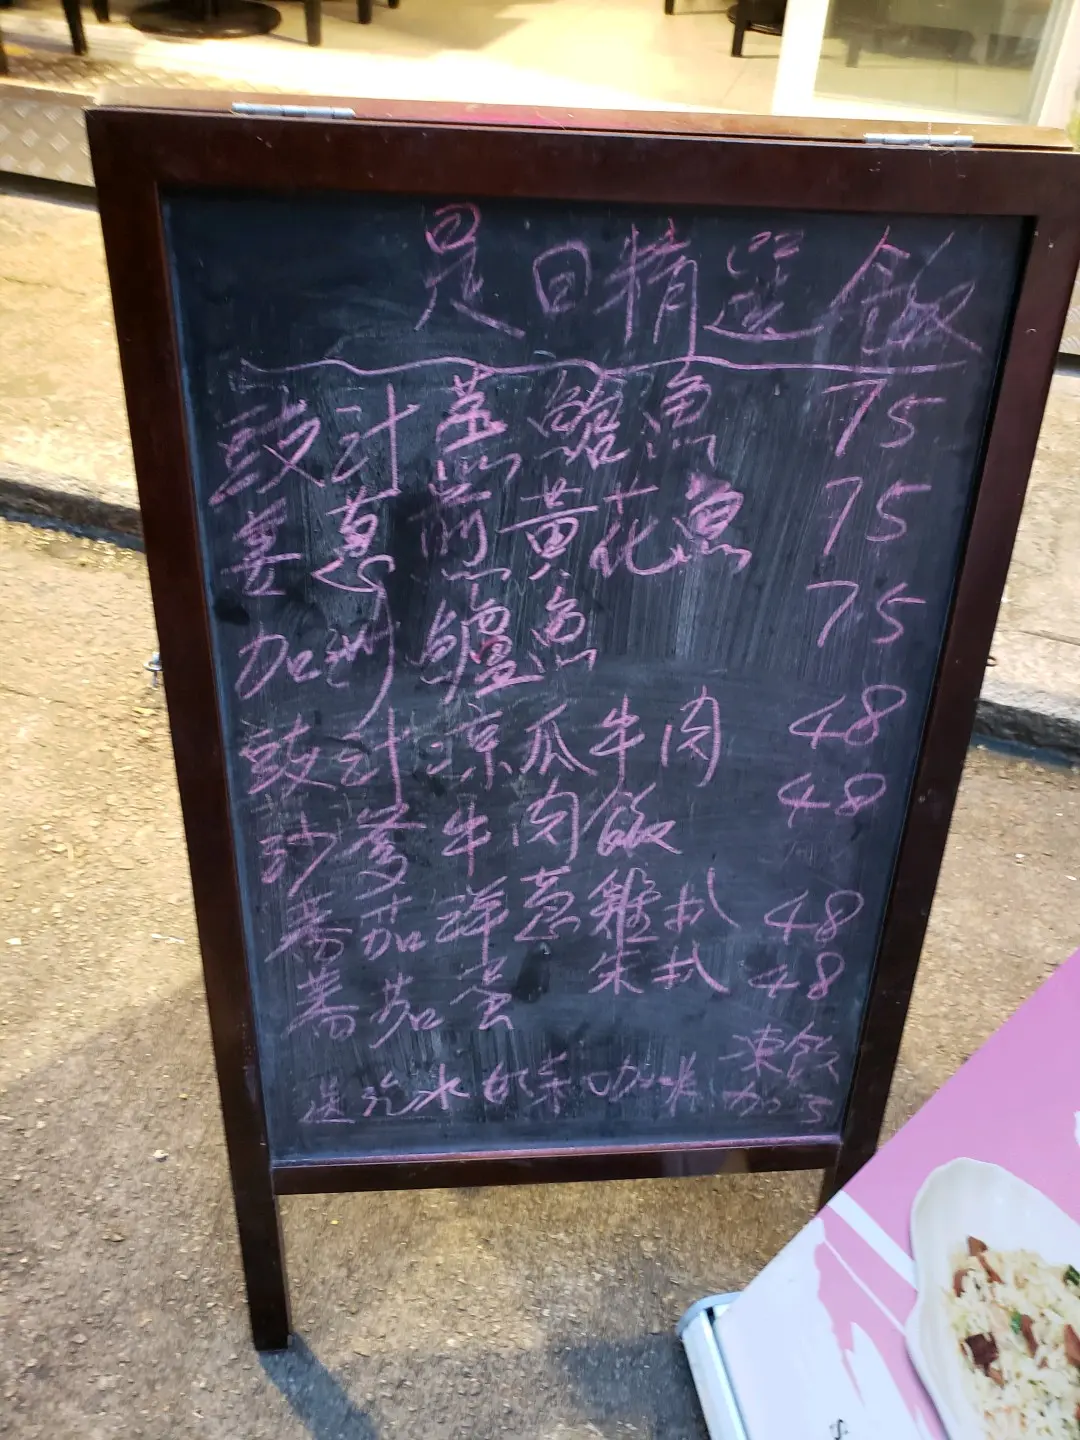 是日精選飯
豉汁蒸鯰魚 75
姜蔥煎黃花魚 75
加州鱸魚 75
豉汁涼瓜牛肉 48
沙爹牛肉飯 48
蕃茄洋蔥雞扒 48
蕃茄蛋 朱扒 48
送汽水 咖 凍飲
加3